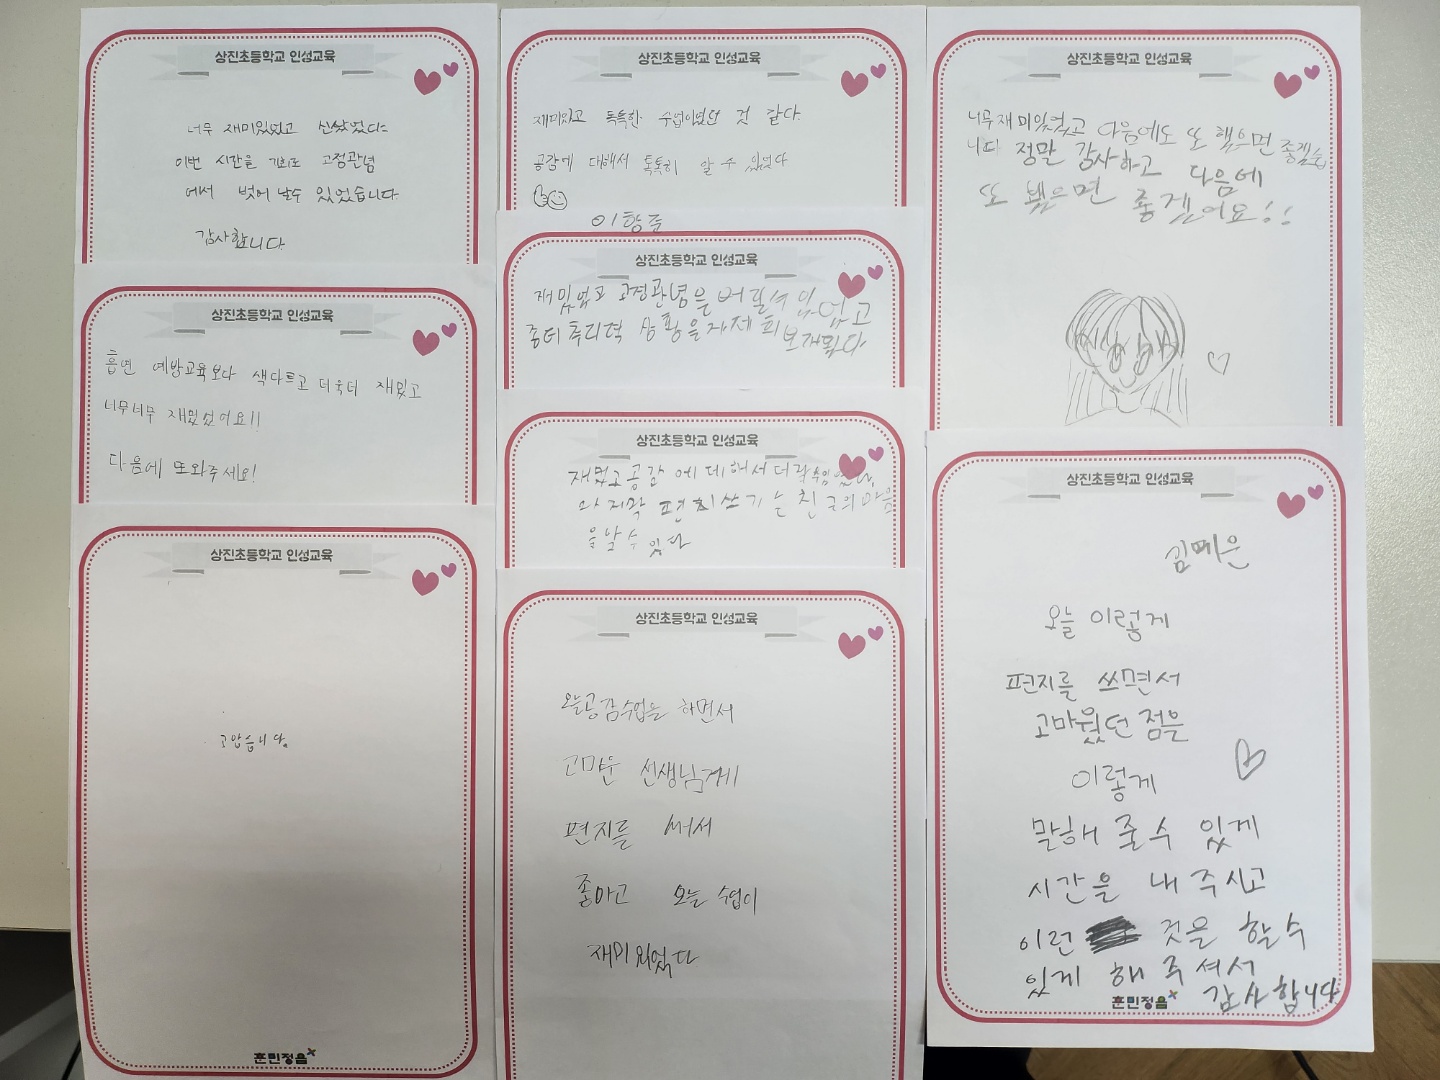 상진초등학교 인성교육
너무 재미있었고 신났었다
이번 시간을 기회로 고정관념
에서 벗어 날수 있었습니다
감사합니다
상진초등학교 인성교육
흡연 예방교육보다 색다르고 더욱더 재밌고
너무너무 재밌었어요!!
다음에 또와주세요!
상진초등학교 인성교육
고맙습니다.
훈민정음
상진초등학교 인성교육
재미있고 톡톡한 수업이었던 것 같다.
공감에 대해서 톡톡히 알 수 있었다
이항준
상진초등학교 인성교육
재밌었고 고정관념을 버릴수 있었고
좀더 추리력 상황을
보개됬다
상진초등학교 인성교육
재밌고 공감 에 데해서 더
마지막 편지쓰기 는 친구의 마음
을 알 수 있다
상진초등학교 인성교육
오늘공감수업을 하면서
고마운 선생님게
편지를 써서
좋아고 오늘 수업이
재미있었다
상진초등학교 인성교육
너무재미있었고 다음에도 또 했으면 좋겠습
니다 정말 감사하고 다음에
또 봤으면 좋겠어요!!
상진초등학교 인성교육
오늘 이렇게
편지를 쓰면서
고마웠던 점을
이렇게
말해 줄수 있게
시간을 내주시고
이런 것을 할수
있게 해주셔서
감사합니다
훈민정음